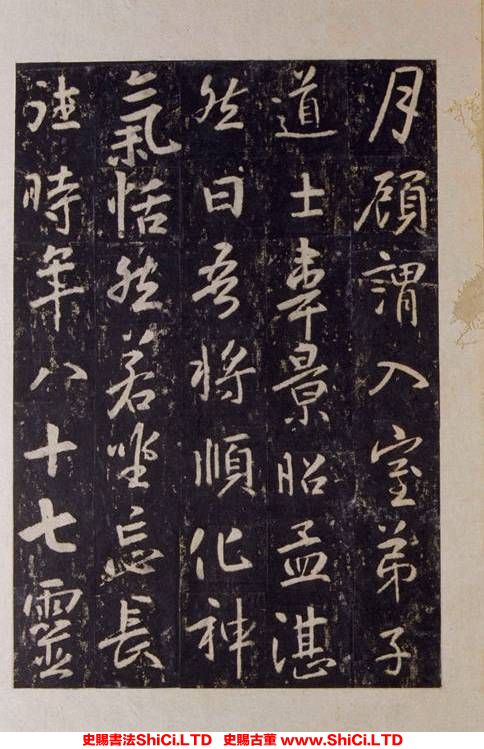 月顧謂入室弟子
道士韋景昭孟湛
然曰吾將順化神
氣恬然若坐忘長
往時年八十七靈
史賜書法ShiCi.LTD 史賜古董 www.ShiCi.LTD